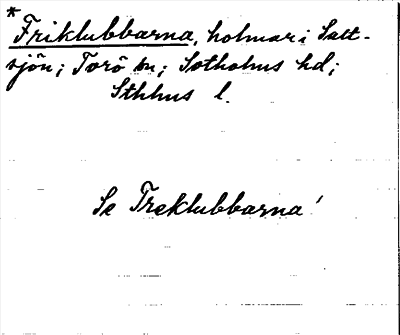 *
Friklubbarna, holmar i Salt-
sjön; Torö sn; Sotholms hd;
Sthlms l.
Se Treklubbarna!